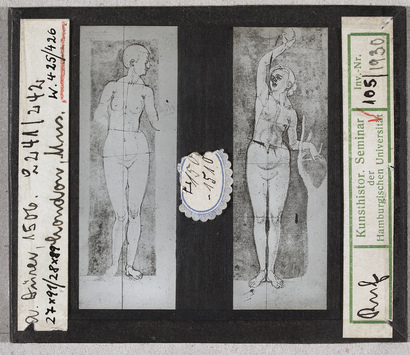 a. Dürer, 1506. L 241/242
27x91/28x89 London, Mus.
W. 425/426
-1510
Kunsthistor. Seminar
der
Hamburgischen Universität
Inv.-Nr.
V 105/1930